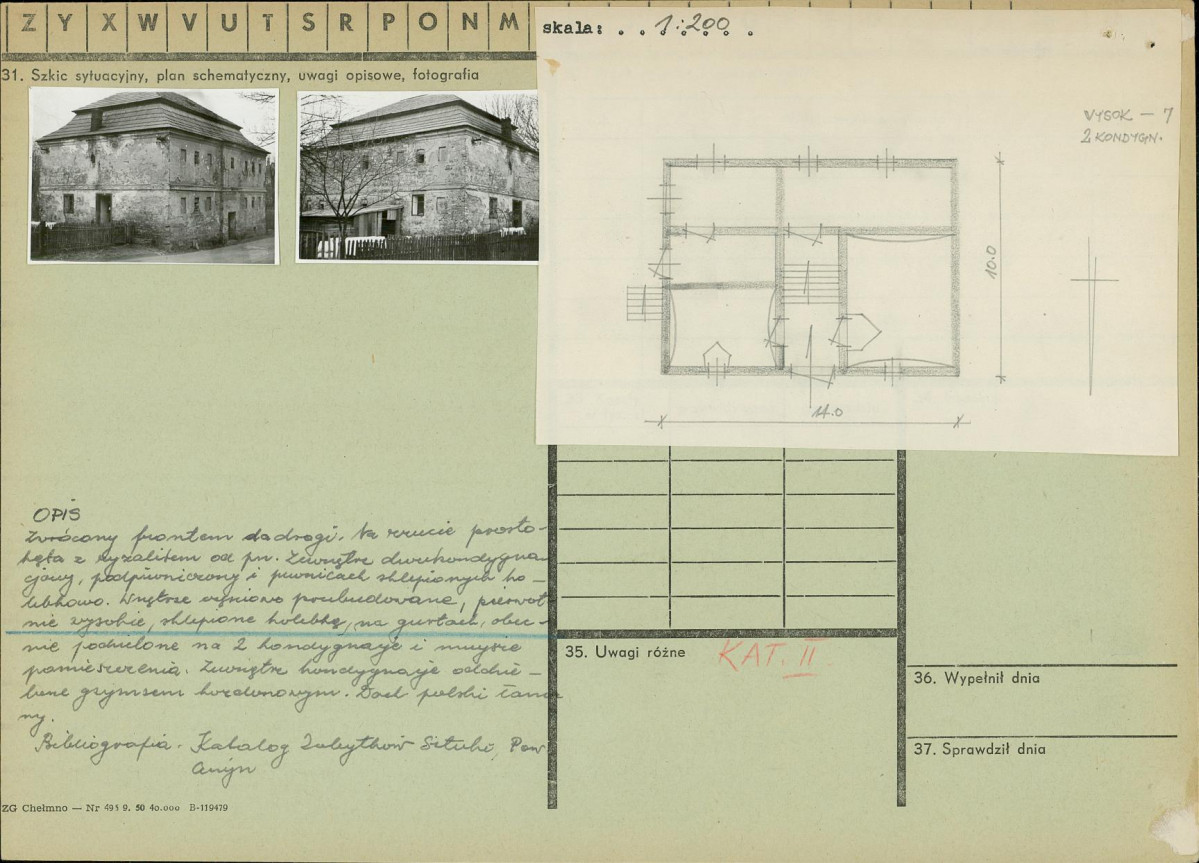 Z Y X W V U T S R P O N M
skala: . . 1:200 . .
31. Szkic sytuacyjny, plan schematyczny, uwagi opisowe, fotografia
WYSOK — 7
2 KONDYGN.
10.0
14.0
OPIS
Zwrócony frontem do drogi. Na rzucie prosto-
kąta z ryzalitem od pn. Zewnątrz dwukondygna
cjowy, podpiwniczony i piwnicach sklepionych ko-
lebkowo. Wnętrze częściowo przebudowane, pierwot
nie wysokie, sklepione kolebką, na gurtach, obec-
nie podzielone na 2 kondygnacje i mniejsze
pomieszczenia. Zewnątrz kondygnacje oddzie-
lone gzymsem kordonowym. Dach polski łama
ny.
Bibliografia. Katalog Zabytków Sztuki, Pow
35. Uwagi różne
KAT. II
36. Wypełnił dnia
37. Sprawdził dnia
ZG Chełmno — Nr 495 9. 50 40.000 B-119479